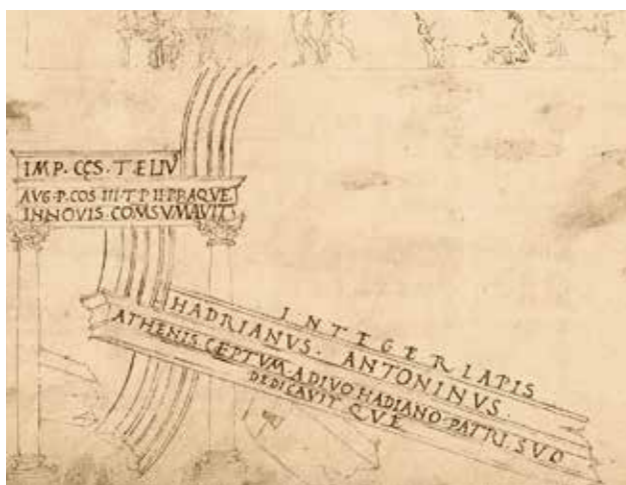 IMP·CĘS·T·ELIV
AVG·P·COS·III·T·P·II·P·P·AQVE·
INNOVIS·COMSVMAVIT
INTEGER LAPIS
HADRIANVS·ANTONINVS·
ATHENIS·CŒPTVM·ADIVO·HADIANO·PATRI·SVO
DEDICAVIT QVE